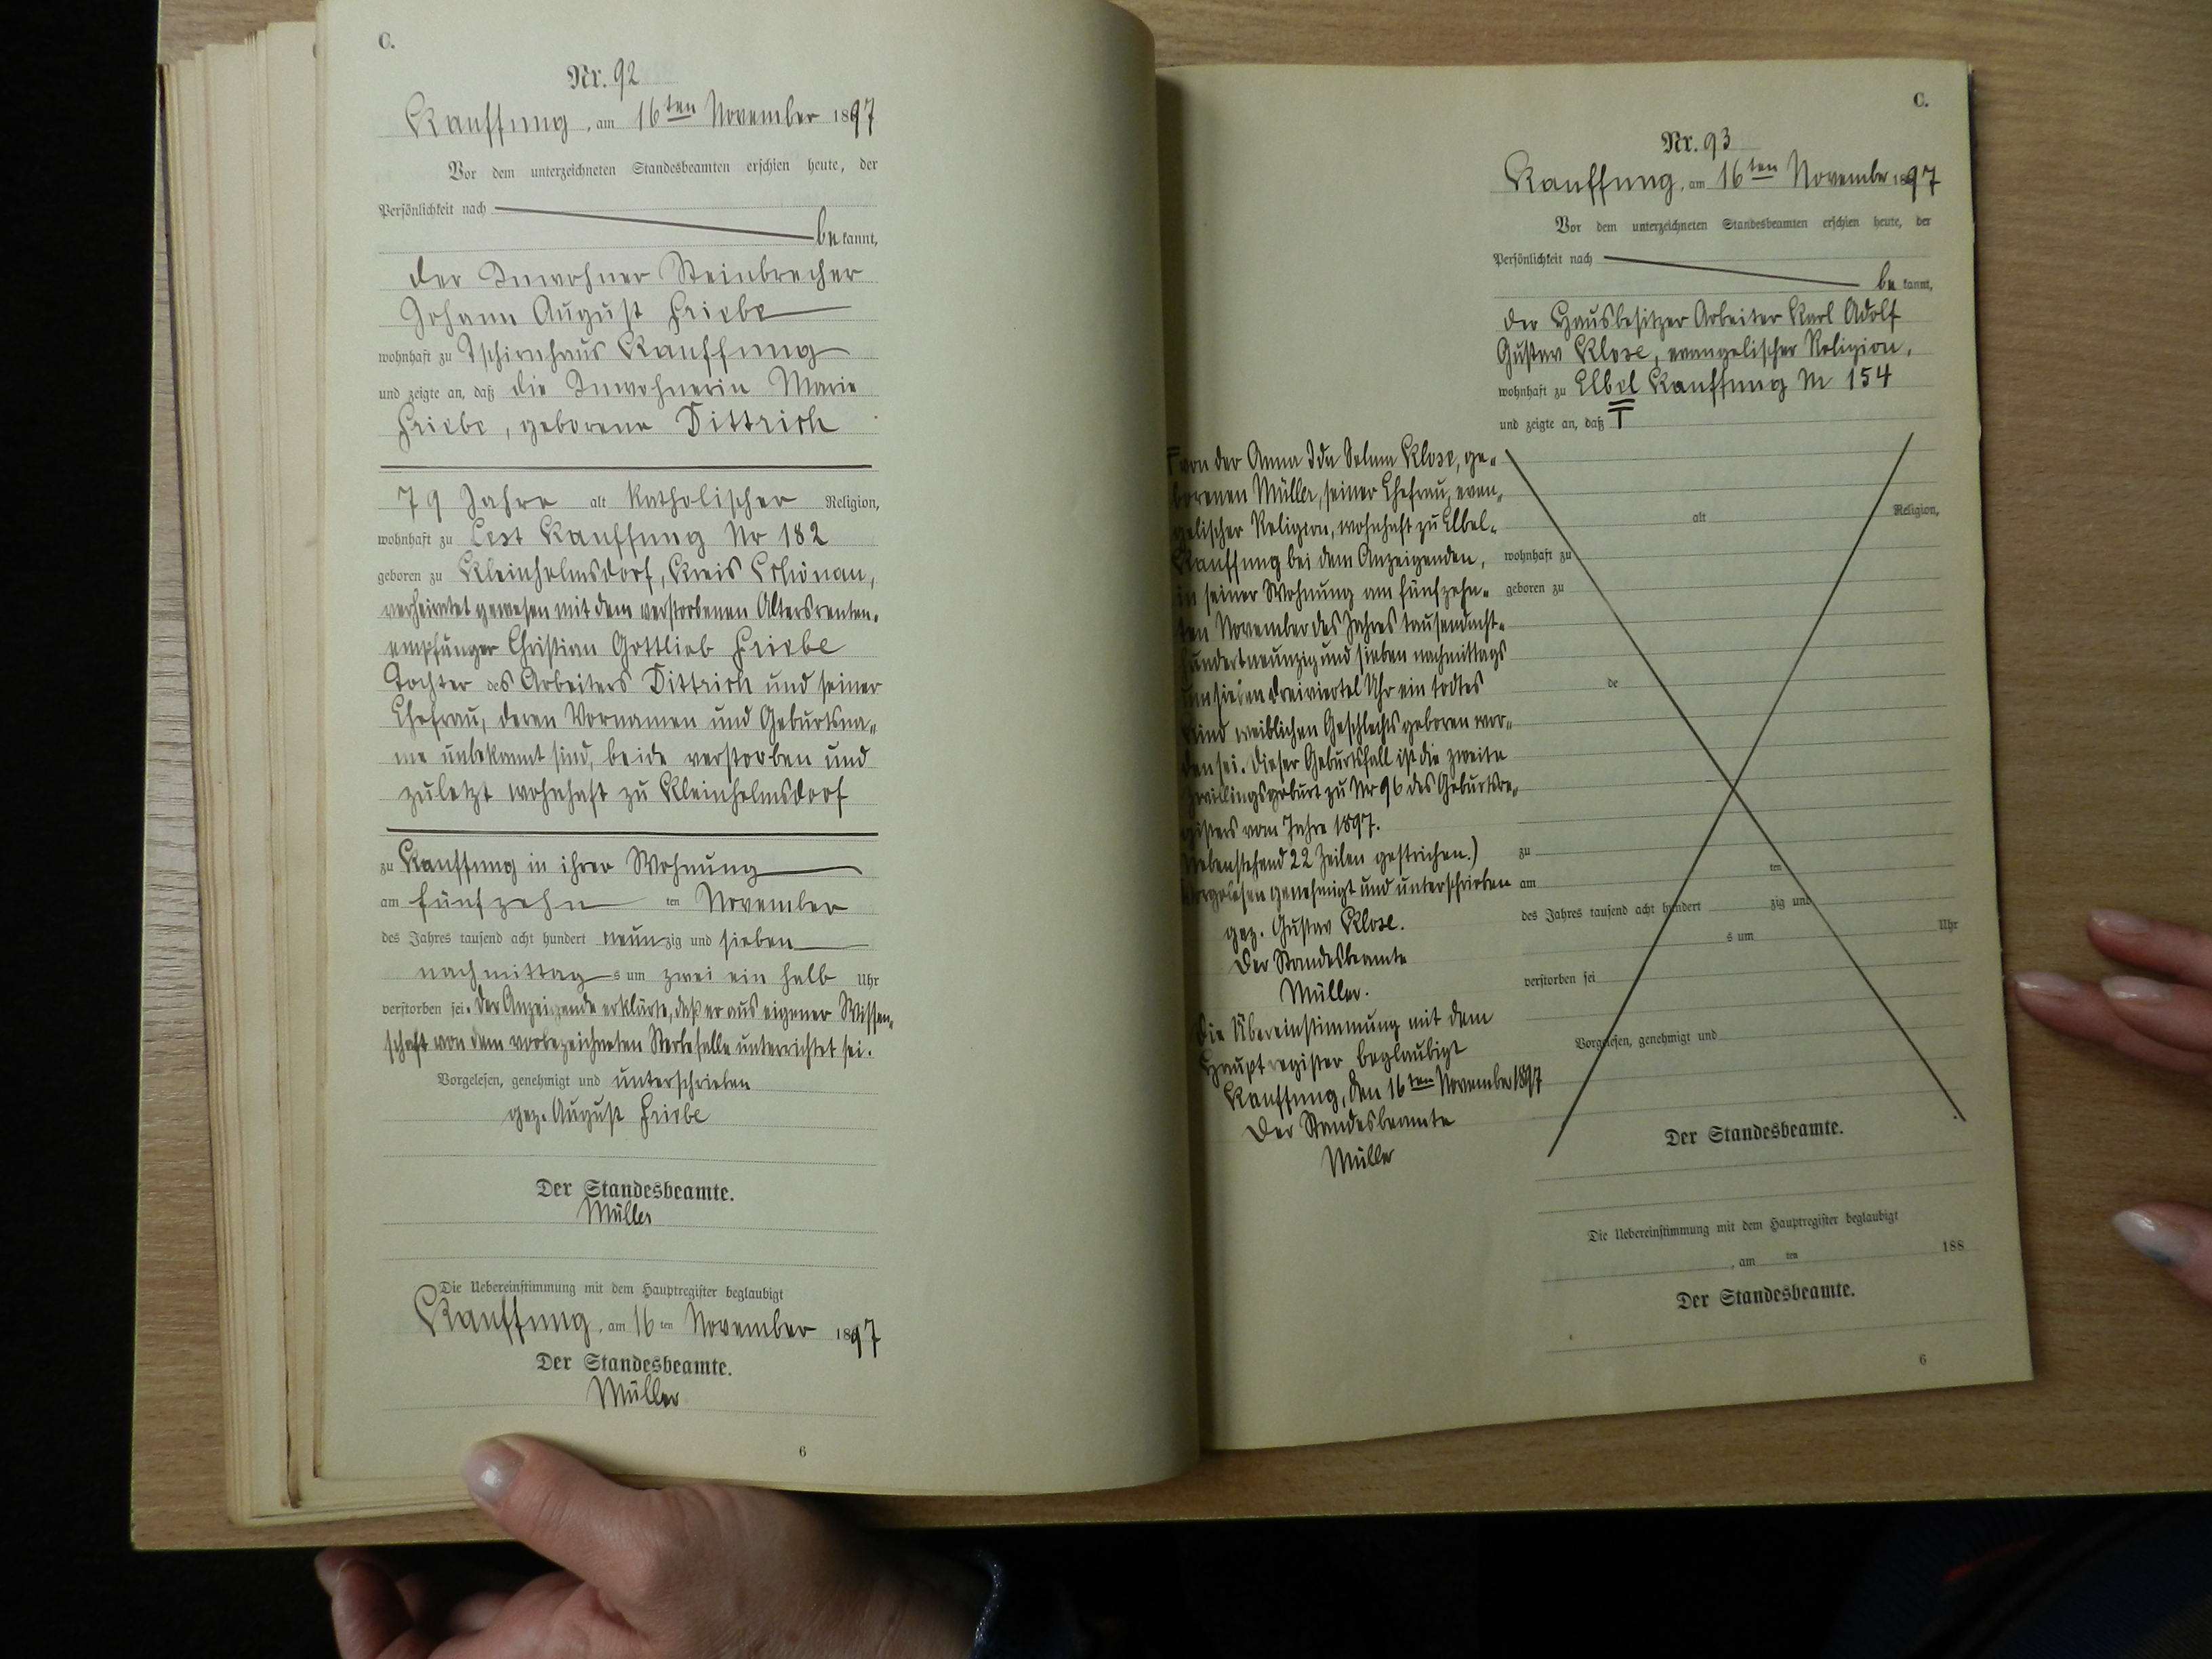 C.
Nr. 92
Kauffung, am 16ten November 1897
Vor dem unterzeichneten Standesbeamten erschien heute, der
Persönlichkeit nach
be kannt,
der Inwohner Steinbrecher
Johann August Friebe
wohnhaft zu Tschirnhaus Kauffung
und zeigte an, daß die Inwohnerin Marie
Friebe, geborene Dittrich
79 Jahre alt katholischer Religion,
wohnhaft zu Kauffung No 182
geboren zu Kleinhelmsdorf, Kreis Schönau,
verheiratet gewesen mit dem verstorbenen Altersrenten-
empfänger Christian Gottlieb Friebe
Tochter des Arbeiters Dittrich und seiner
Ehefrau, deren Vornamen und Geburtsna-
me unbekannt sind, beide verstorben und
zuletzt wohnhaft zu Kleinhelmsdorf
zu Kauffung in ihrer Wohnung
am fünfzehn ten November
des Jahres tausend acht hundert neunzig und sieben
nachmittags um zwei ein halb Uhr
verstorben sei. Der Anzeigende erklärte, daß er aus eigener Wissen-
schaft von dem vorbezeichneten Sterbefalle unterrichtet sei.
Vorgelesen, genehmigt und unterschrieben
gez. August Friebe
Der Standesbeamte.
Müller
Die Uebereinstimmung mit dem Hauptregister beglaubigt
Kauffung, am 16 ten November 1897
Der Standesbeamte.
Müller
6
C.
Nr. 93
Kauffung, am 16ten November 1897
Vor dem unterzeichneten Standesbeamten erschien heute, der
Persönlichkeit nach
be kannt,
der Hausbesitzer Arbeiter Karl Adolf
Gustav Klose, evangelischer Religion,
wohnhaft zu Elbel Kauffung No 154
und zeigte an, daß
von der Anna Ida Selma Klose, ge-
borenen Müller, seiner Ehefrau, evan-
gelischer Religion, wohnhaft zu Elbel-
Kauffung bei dem Anzeigenden,
in seiner Wohnung am fünfzehn-
ten November des Jahres tausendacht-
hundertneunzig und sieben nachmittags
um sieben dreiviertel Uhr ein todtes
Kind weiblichen Geschlechts geboren wor-
den sei. Dieser Geburtsfall ist die zweite
Zwillingsgeburt zu Nr 96 des Geburtsre-
gisters vom Jahre 1897.
Nebenstehend 22 Zeilen gestrichen.)
Vorgelesen genehmigt und unterschrieben
gez. Gustav Klose.
Der Standesbeamte
Müller.
Die Übereinstimmung mit dem
Hauptregister beglaubigt
Kauffung, den 16ten November 1897
Der Standesbeamte
Müller
alt Religion,
wohnhaft zu
geboren zu
de
zu
am ten
des Jahres tausend acht hundert zig und
s um Uhr
verstorben sei
Vorgelesen, genehmigt und
Der Standesbeamte.
Die Uebereinstimmung mit dem Hauptregister beglaubigt
, am ten 188
Der Standesbeamte.
6